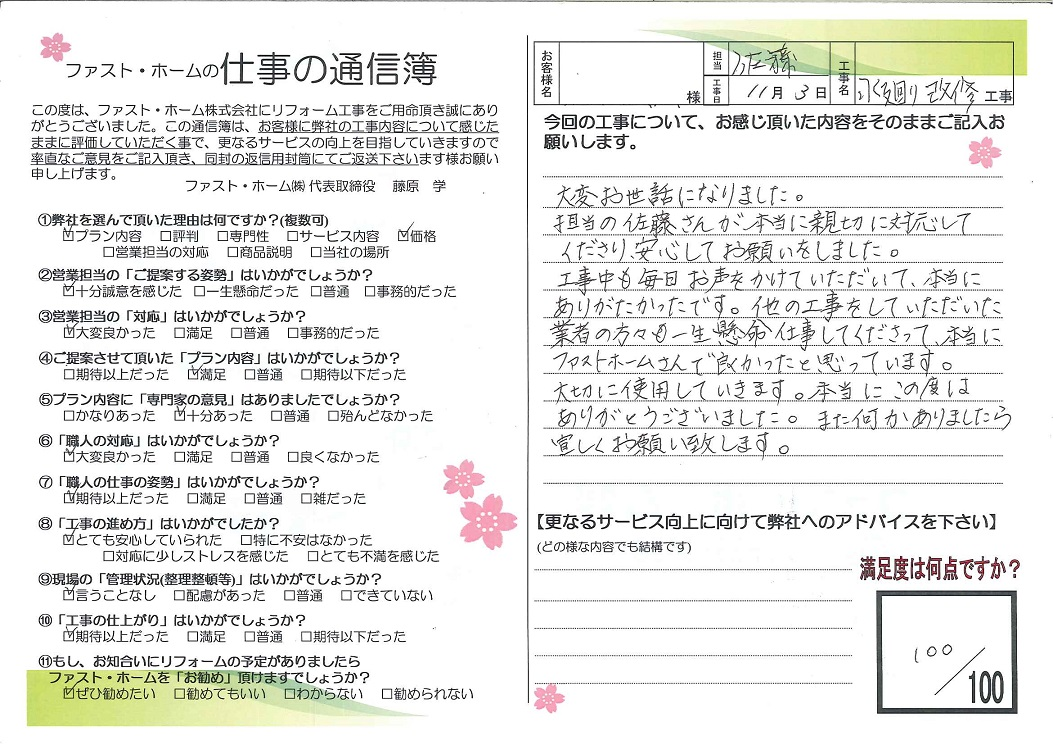 ファスト・ホームの仕事の通信簿
この度は、ファスト・ホーム株式会社にリフォーム工事をご用命頂き誠にあり
がとうございました。この通信簿は、お客様に弊社の工事内容について感じた
ままに評価していただく事で、更なるサービスの向上を目指していきますので
率直なご意見をご記入頂き、同封の返信用封筒にてご返送下さいます様お願い
申し上げます。
ファスト・ホーム㈱ 代表取締役 藤原 学
①弊社を選んで頂いた理由は何ですか？(複数可)
☑プラン内容 □評判 □専門性 □サービス内容 ☑価格
□営業担当の対応 □商品説明 □当社の場所
②営業担当の「ご提案する姿勢」はいかがでしょうか？
☑十分誠意を感じた □一生懸命だった □普通 □事務的だった
③営業担当の「対応」はいかがでしょうか？
☑大変良かった □満足 □普通 □事務的だった
④ご提案させて頂いた「プラン内容」はいかがでしょうか？
□期待以上だった ☑満足 □普通 □期待以下だった
⑤プラン内容に「専門家の意見」はありましたでしょうか？
□かなりあった ☑十分あった □普通 □殆んどなかった
⑥「職人の対応」はいかがでしょうか？
☑大変良かった □満足 □普通 □良くなかった
⑦「職人の仕事の姿勢」はいかがでしょうか？
☑期待以上だった □満足 □普通 □雑だった
⑧「工事の進め方」はいかがでしたか？
☑とても安心していられた □特に不安はなかった
□対応に少しストレスを感じた □とても不満を感じた
⑨現場の「管理状況(整理整頓等)」はいかがでしょうか？
☑言うことなし □配慮があった □普通 □できていない
⑩「工事の仕上がり」はいかがでしょうか？
☑期待以上だった □満足 □普通 □期待以下だった
⑪もし、お知合いにリフォームの予定がありましたら
ファスト・ホームを「お勧め」頂けますでしょうか？
☑ぜひ勧めたい □勧めてもいい □わからない □勧められない
お客様名 様 担当 佐藤 工事日 11月3日 工事名 水廻り改修 工事
今回の工事について、お感じ頂いた内容をそのままご記入お
願いします。
大変お世話になりました。
担当の佐藤さんが本当に親切に対応して
くださり、安心してお願いをしました。
工事中も毎日お声をかけていただいて、本当に
ありがたかったです。他の工事をしていただいた
業者の方々も一生懸命仕事してくださって、本当に
ファストホームさんで良かったと思っています。
大切に使用していきます。本当にこの度は
ありがとうございました。また何かありましたら
宜しくお願い致します。
【更なるサービス向上に向けて弊社へのアドバイスを下さい】
(どの様な内容でも結構です)
満足度は何点ですか？
100／100